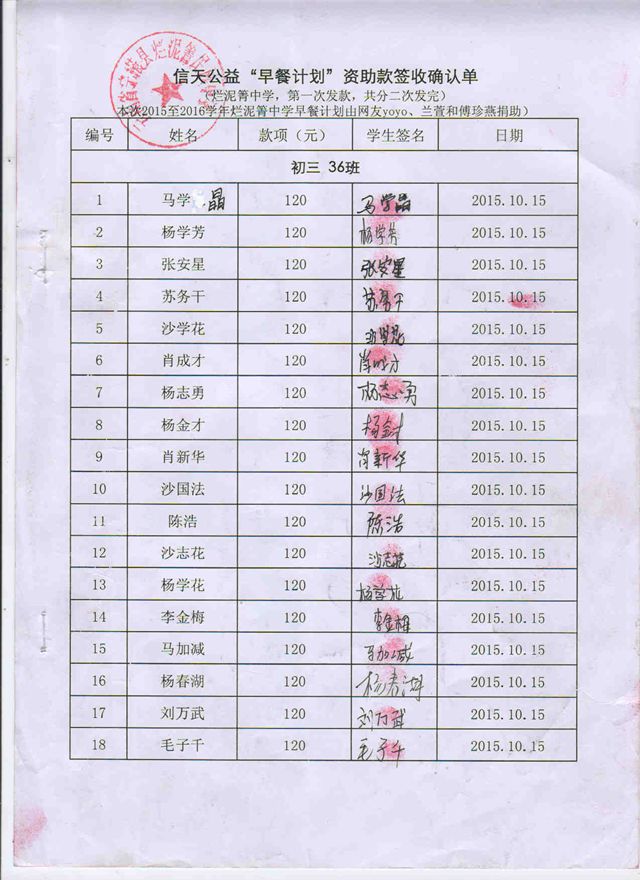 信天公益“早餐计划”资助款签收确认单
（烂泥箐中学，第一次发款，共分二次发完）
本次2015至2016学年烂泥箐中学早餐计划由网友yoyo、兰萱和傅珍燕捐助）
编号 姓名 款项（元） 学生签名 日期
初三 36班
1 马学晶 120 马学晶 2015.10.15
2 杨学芳 120 杨学芳 2015.10.15
3 张安星 120 张安星 2015.10.15
4 苏务干 120 苏务干 2015.10.15
5 沙学花 120 2015.10.15
6 肖成才 120 肖成才 2015.10.15
7 杨志勇 120 杨志勇 2015.10.15
8 杨金才 120 杨金才 2015.10.15
9 肖新华 120 肖新华 2015.10.15
10 沙国法 120 沙国法 2015.10.15
11 陈浩 120 陈浩 2015.10.15
12 沙志花 120 沙志花 2015.10.15
13 杨学花 120 杨学花 2015.10.15
14 李金梅 120 李金梅 2015.10.15
15 马加减 120 马加减 2015.10.15
16 杨春湖 120 杨春湖 2015.10.15
17 刘万武 120 刘万武 2015.10.15
18 毛子千 120 毛子千 2015.10.15